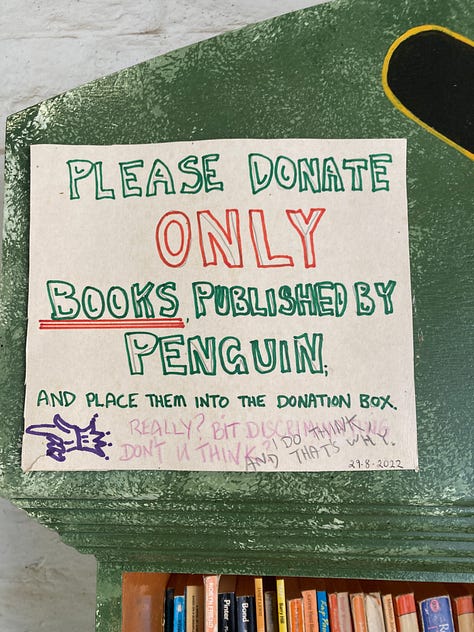 PLEASE DONATE
ONLY
BOOKS PUBLISHED BY
PENGUIN,
AND PLACE THEM INTO THE DONATION BOX.
REALLY? BIT DISCRIMINATING
DON'T U THINK?
I DO THINK
AND THAT'S WHY.
27-8-2022
Pinter
Bond